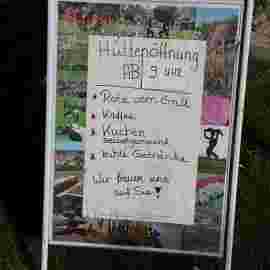 Hüttenöffnung
AB 9 Uhr
Rote vom Grill
Kaffee
Kuchen
selbstgemacht
kühle Getränke
Wir freuen uns
auf Sie!